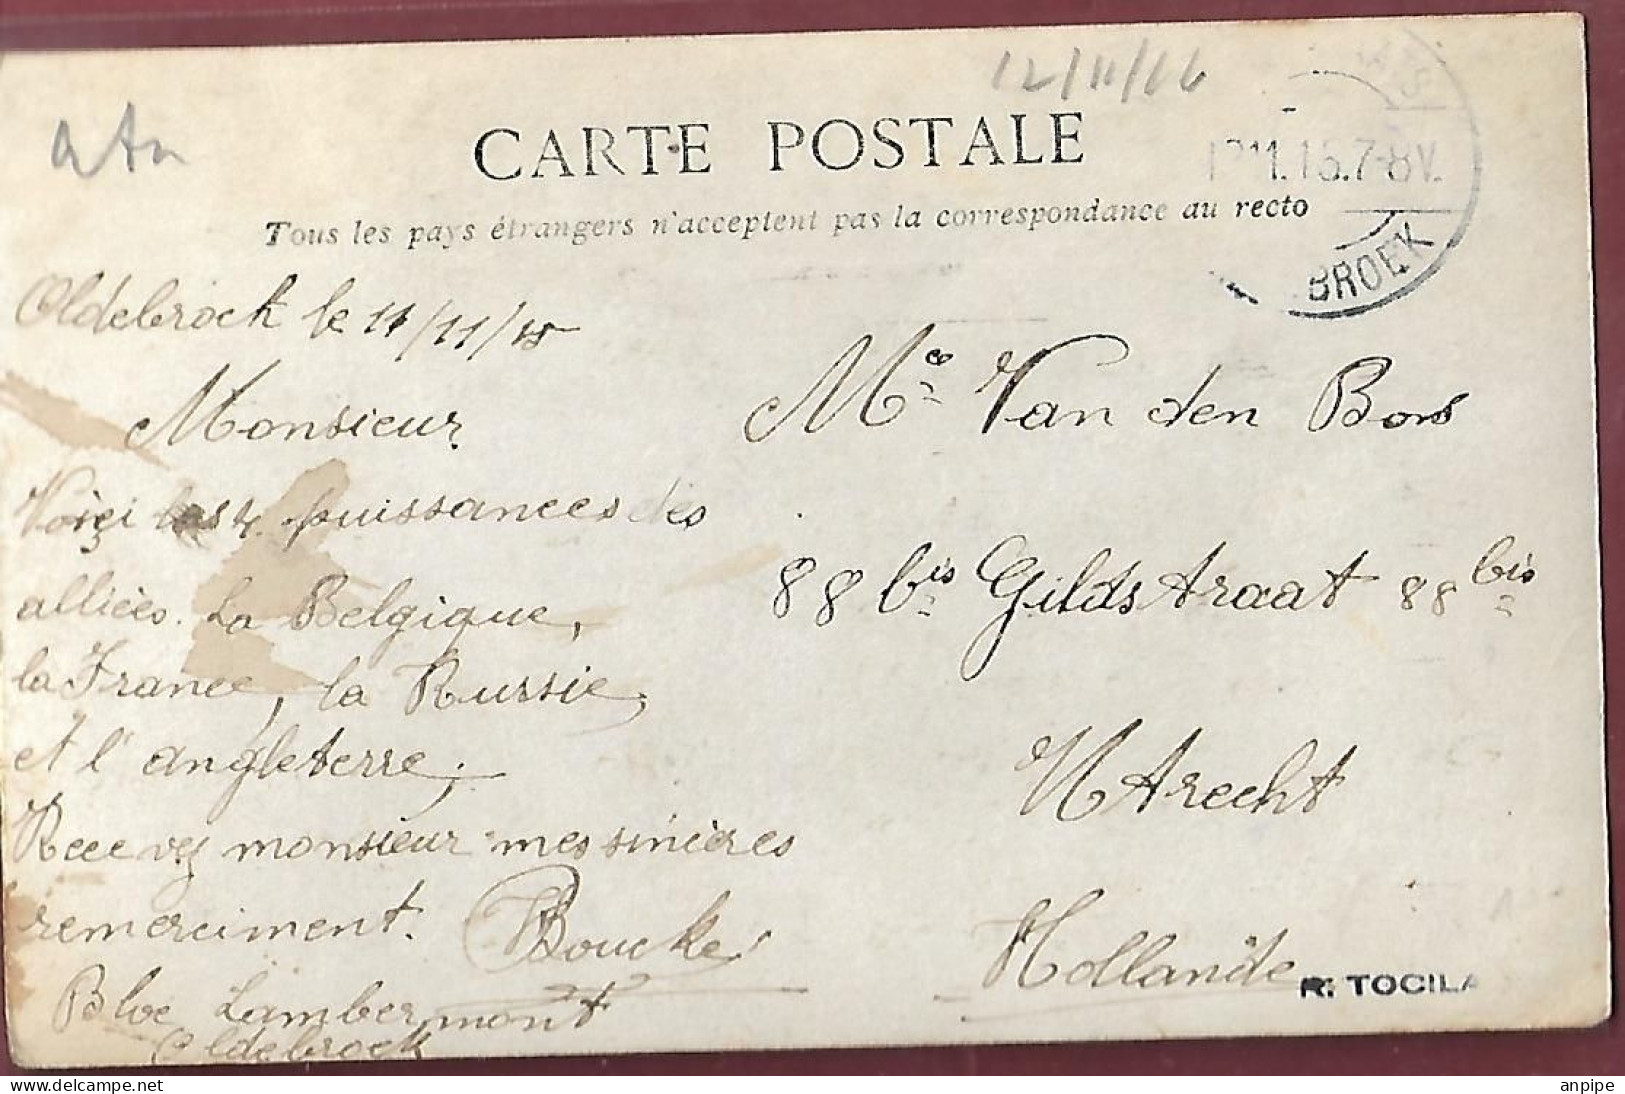 12/11/16
atn
CARTE POSTALE
Tous les pays étrangers n'acceptent pas la correspondance au recto
11.15.7-8V.
BROEK
Oldebrock le 11/11/15
Monsieur
Voiçi les 4 puissances des
alliées. La Belgique,
la France, la Russie,
et l'angleterre.
Recevez monsieur mes sinières
remerciment. Boucke
Blve Lambermont
Oldebrock
Mce Van den Bos
88 bis Gildstraat 88 bis
Utrecht
Hollande
R. TOCILA
delcampe.net
anpipe